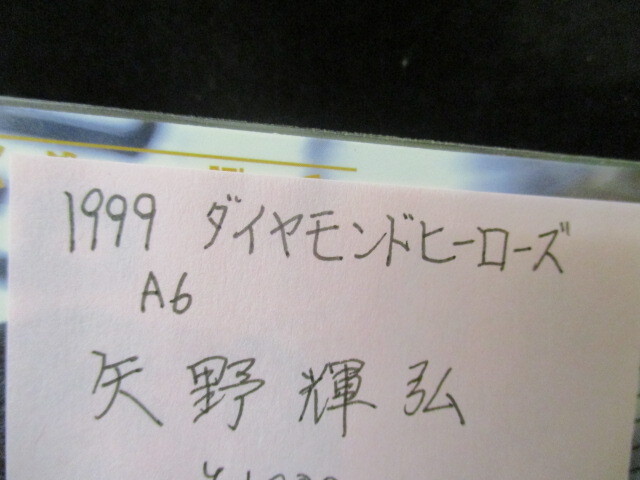 1999 ダイヤモンドヒーローズ
A6
矢野輝弘